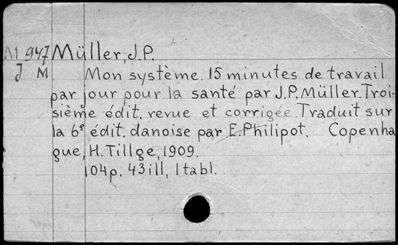 M 947 Müller, J.P.
J M Mon système. 15 minutes de travail
par jour pour la santé par J.P. Müller. Troi-
sième édit. revue et corrigée. Traduit sur
la 6e édit. danoise par E. Philipot. Copenha
gue, H. Tillge, 1909.
104p. 43 ill, 1 tabl.